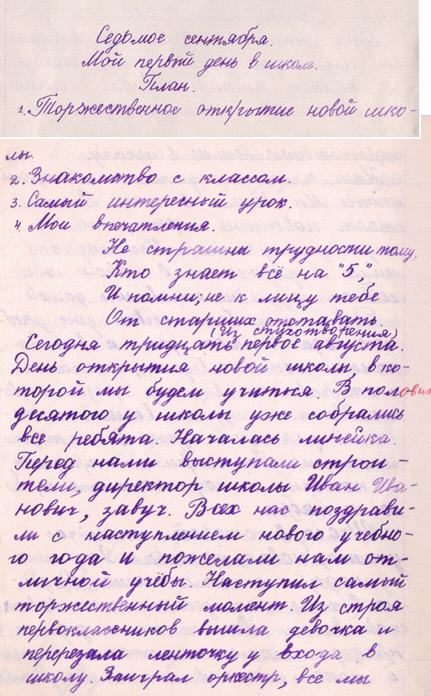 Седьмое сентября.
Мой первый день в школе.
План.
1. Торжественное открытие новой шко-
лы.
2. Знакомство с классом.
3. Самый интересный урок.
4. Мои впечатления.
Не страшны трудности тому,
Кто знает всё на "5",
И помни: не к лицу тебе
От старших отставать.
(Из стихотворения)
Сегодня тридцать первое августа.
День открытия новой школы, в ко-
торой мы будем учиться. В полови
десятого у школы уже собрались
все ребята. Началась линейка.
Перед нами выступали строи-
тели, директор школы Иван Ива-
нович, завуч. Всех нас поздрави-
ли с наступлением нового учебно-
го года и пожелали нам от-
личной учёбы. Наступил самый
торжественный момент. Из строя
первоклассников вышла девочка и
перерезала ленточку у входа в
школу. Заиграл оркестр, все мы